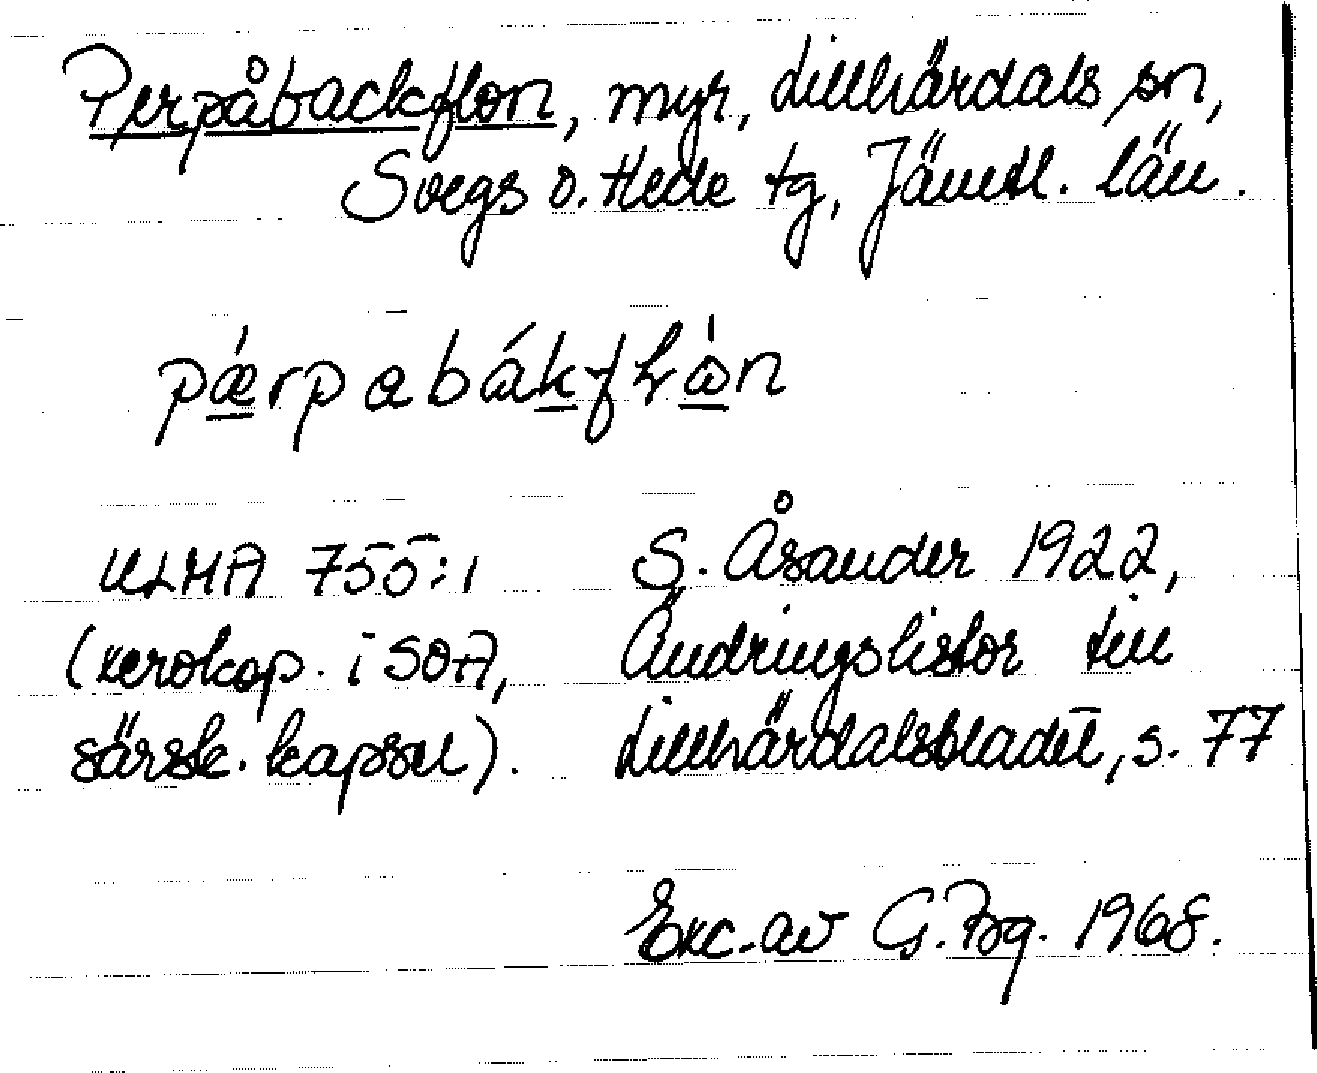 Perpåbackflon, myr, Lillhärdals sn,
Svegs o. Hede tg, Jämtl. län.
pǽrpabákflån
ULMA 755:1 S. Åsander 1922,
(xerokop. i SOA, Ändringslistor till
särsk. kapsel). Lillhärdalsbladet, s. 77
Exc. av G. Bg. 1968.